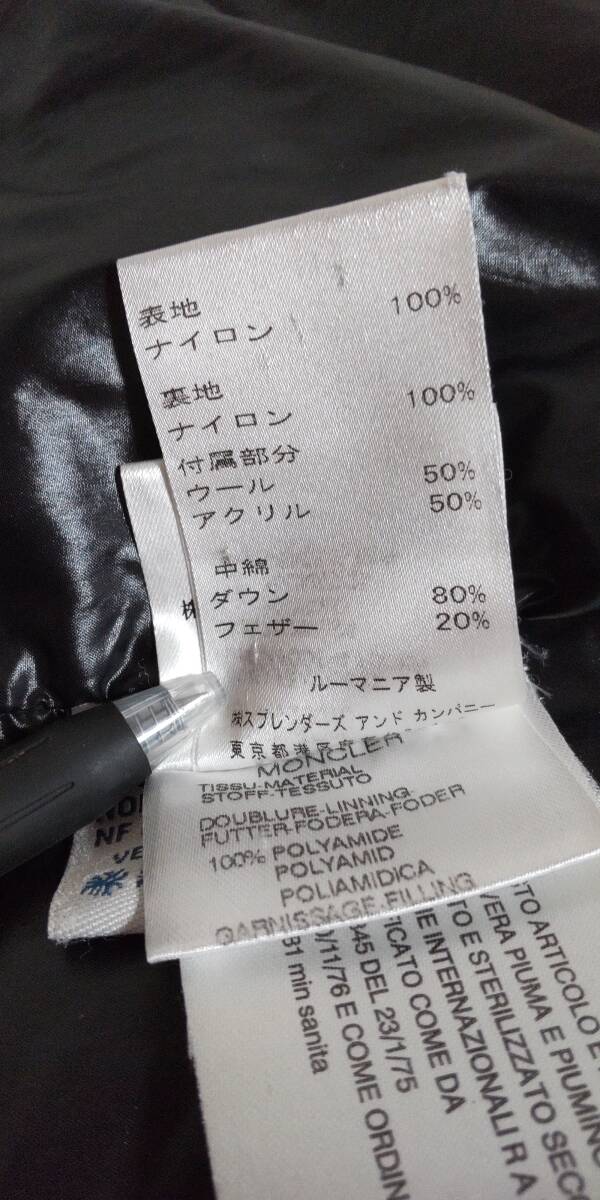 表地 100%
ナイロン
裏地 100%
ナイロン
付属部分
ウール 50%
アクリル 50%
中綿
ダウン 80%
フェザー 20%
ルーマニア製
㈱スプレンダーズ アンド カンパニー
東京都港区
株
MONCLER
TISSU-MATERIAL
STOFF-TESSUTO
DOUBLURE-LINNING-
FUTTER-FODERA-FODER
100% POLYAMIDE
POLYAMID
POLIAMIDICA
GARNISSAGE-FILLING
NF
ARTICOLO E
VERA PIUMA E PIUMINO
TO E STERILIZZATO SECO
IE INTERNAZIONALI R A
FICATO COME DA
345 DEL 23/1/75
0/11/76 E COME ORDIN
81 min sanita